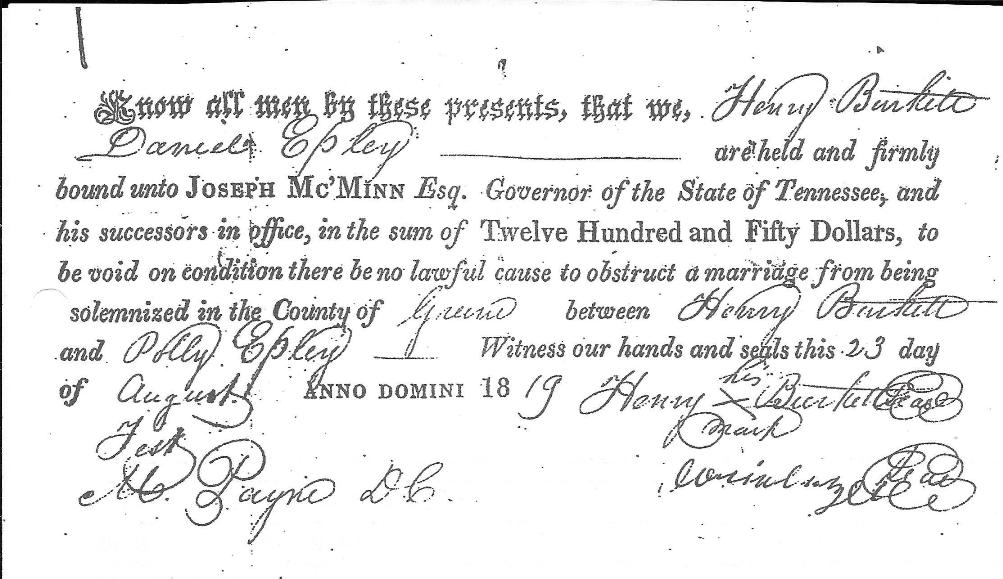 Know all men by these presents, that we, Henry Burkett
Daniel Epley are held and firmly
bound unto JOSEPH MC'MINN Esq. Governor of the State of Tennessee, and
his successors in office, in the sum of Twelve Hundred and Fifty Dollars, to
be void on condition there be no lawful cause to obstruct a marriage from being
solemnized in the County of Greene between Henry Burkett
and Polly Epley Witness our hands and seals this 23 day
of August ANNO DOMINI 1819 Henry his X mark Burkett Seal
Test
M. Payne D C. Seal